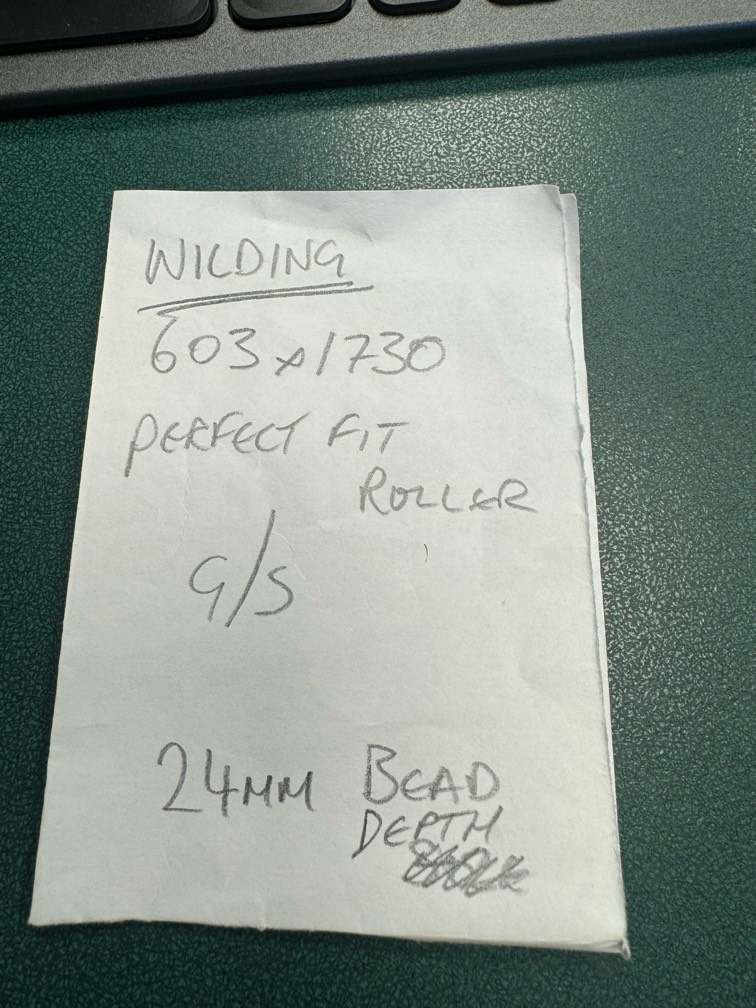 WILDING
603x1730
PERFECT FIT
ROLLER
G/S
24MM BEAD
DEPTH